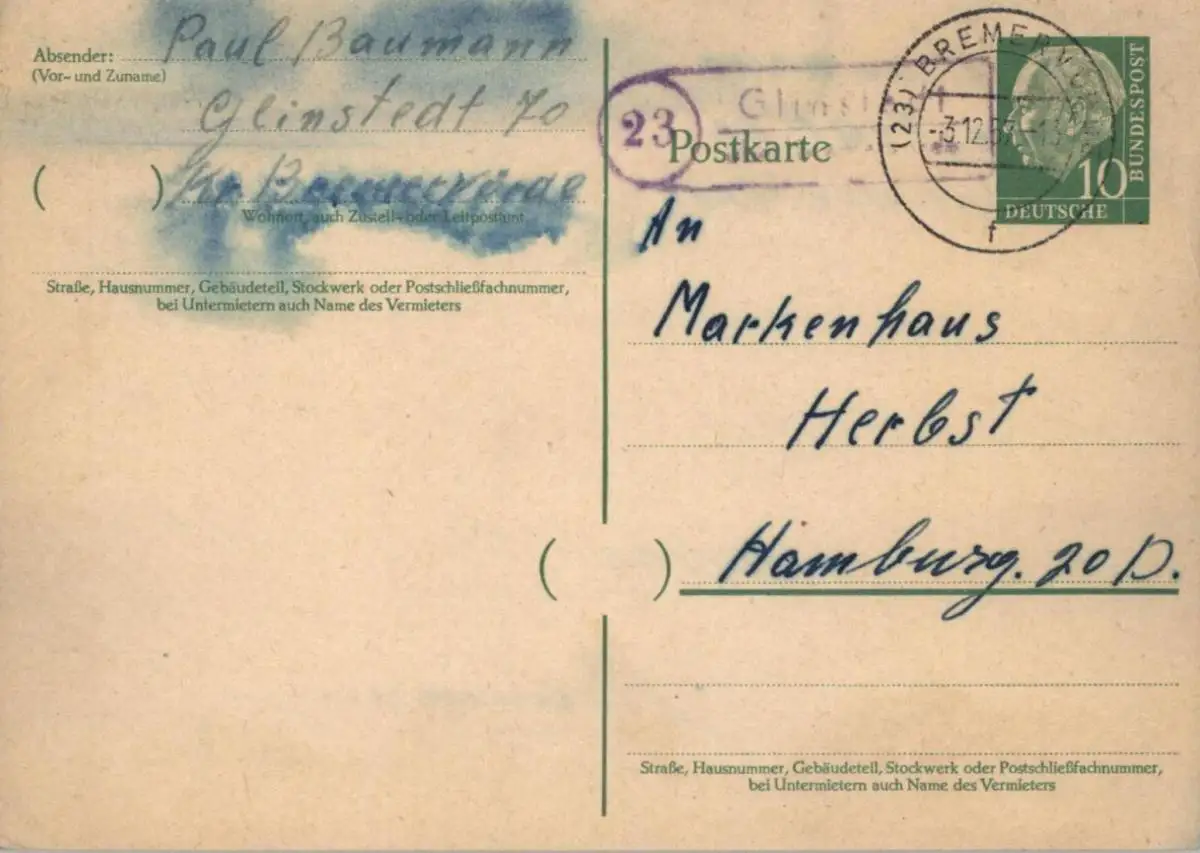 Absender: Paul Baumann
(Vor- und Zuname)
Glinstedt 70
( ) Kr. Bremervörde
Wohnort, auch Zustell- oder Leitpostamt
Straße, Hausnummer, Gebäudeteil, Stockwerk oder Postschließfachnummer,
bei Untermietern auch Name des Vermieters
23
Postkarte
(23) BREMERVÖRDE
f
10
DEUTSCHE
BUNDESPOST
An
Markenhaus
Herbst
( ) Hamburg. 20 D.
Straße, Hausnummer, Gebäudeteil, Stockwerk oder Postschließfachnummer,
bei Untermietern auch Name des Vermieters